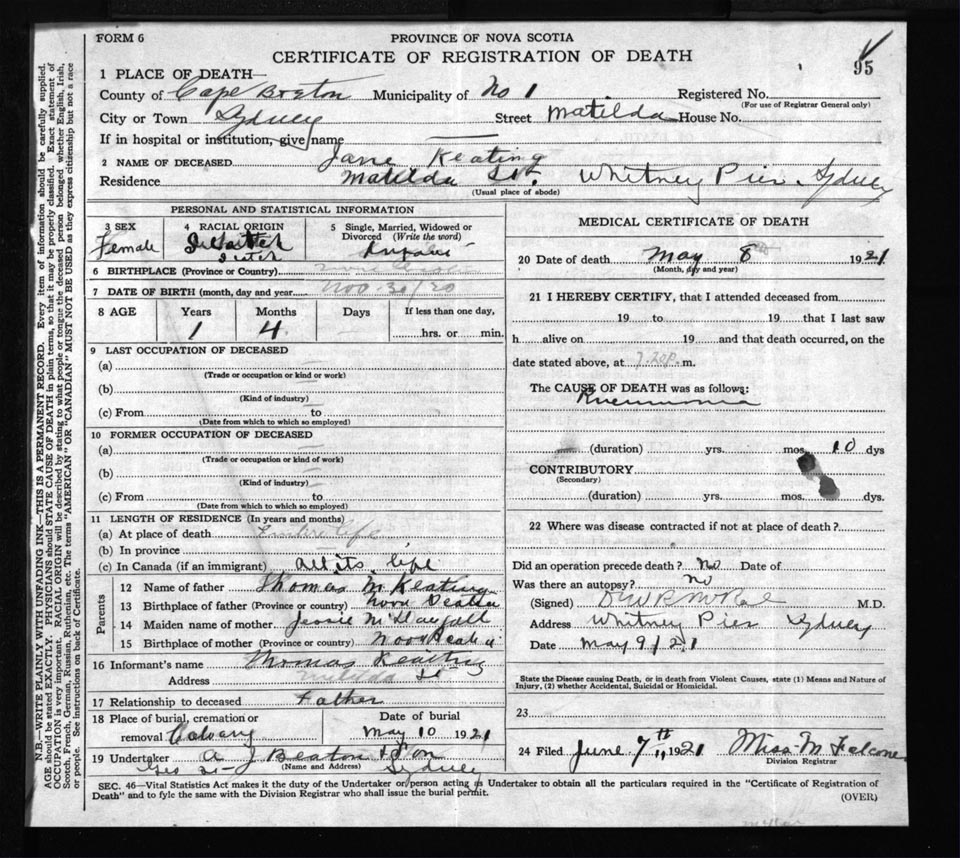 FORM 6
PROVINCE OF NOVA SCOTIA
CERTIFICATE OF REGISTRATION OF DEATH
95
1 PLACE OF DEATH—
County of Cape Breton Municipality of No 1 Registered No.
(For use of Registrar General only)
City or Town Sydney Street Matilda House No.
If in hospital or institution, give name
2 NAME OF DECEASED Jane Keating
Residence Matilda St. Whitney Pier. Sydney
(Usual place of abode)
PERSONAL AND STATISTICAL INFORMATION
3 SEX Female
4 RACIAL ORIGIN
5 Single, Married, Widowed or Divorced (Write the word)
6 BIRTHPLACE (Province or Country)
7 DATE OF BIRTH (month, day and year) Nov. 30/20
8 AGE Years Months Days If less than one day,
1 4 hrs. or min.
9 LAST OCCUPATION OF DECEASED
(a)
(Trade or occupation or kind or work)
(b)
(Kind of industry)
(c) From to
(Date from which to which so employed)
10 FORMER OCCUPATION OF DECEASED
(a)
(Trade or occupation or kind of work)
(b)
(Kind of industry)
(c) From to
(Date from which to which so employed)
11 LENGTH OF RESIDENCE (In years and months)
(a) At place of death Entire life
(b) In province
(c) In Canada (if an immigrant) all its life
Parents
12 Name of father Thomas M Keating
13 Birthplace of father (Province or country) Nova Scotia
14 Maiden name of mother Jessie
15 Birthplace of mother (Province or country) Nova Scotia
16 Informant's name Thomas Keating
Address Matilda St
17 Relationship to deceased Father
18 Place of burial, cremation or removal Calvary
Date of burial May 10 1921
19 Undertaker A J Beaton & Son
(Name and Address)
Geo St— Sydney
MEDICAL CERTIFICATE OF DEATH
20 Date of death May 8 1921
(Month, day and year)
21 I HEREBY CERTIFY, that I attended deceased from
19 to 19 that I last saw
h alive on 19 and that death occurred, on the
date stated above, at 7.20p. m.
The CAUSE OF DEATH was as follows:
Pneumonia
(duration) yrs. mos. 10 dys
CONTRIBUTORY
(Secondary)
(duration) yrs. mos. dys.
22 Where was disease contracted if not at place of death?
Did an operation precede death? No Date of
Was there an autopsy? no
(Signed) M.D.
Address Whitney Pier Sydney
Date May 9/21
State the Disease causing Death, or in death from Violent Causes, state (1) Means and Nature of
Injury, (2) whether Accidental, Suicidal or Homicidal.
23
24 Filed June 7th, 1921 Miss M Falcone
Division Registrar
SEC. 46—Vital Statistics Act makes it the duty of the Undertaker or person acting as Undertaker to obtain all the particulars required in the "Certificate of Registration of
Death" and to fyle the same with the Division Registrar who shall issue the burial permit.
(OVER)
N.B.—WRITE PLAINLY WITH UNFADING INK—THIS IS A PERMANENT RECORD. Every item of information should be carefully supplied.
AGE should be stated EXACTLY. PHYSICIANS should STATE CAUSE OF DEATH in plain terms, so that it may be properly classified. Exact statement of
OCCUPATION is very important. RACIAL ORIGIN will be described by stating to what people or tongue the deceased person belonged whether English, Irish,
Scotch, French, German, Russian, Ruthenian, etc. The terms "AMERICAN" OR "CANADIAN" MUST NOT BE USED as they express citizenship but not a race
or people. See instructions on back of Certificate.